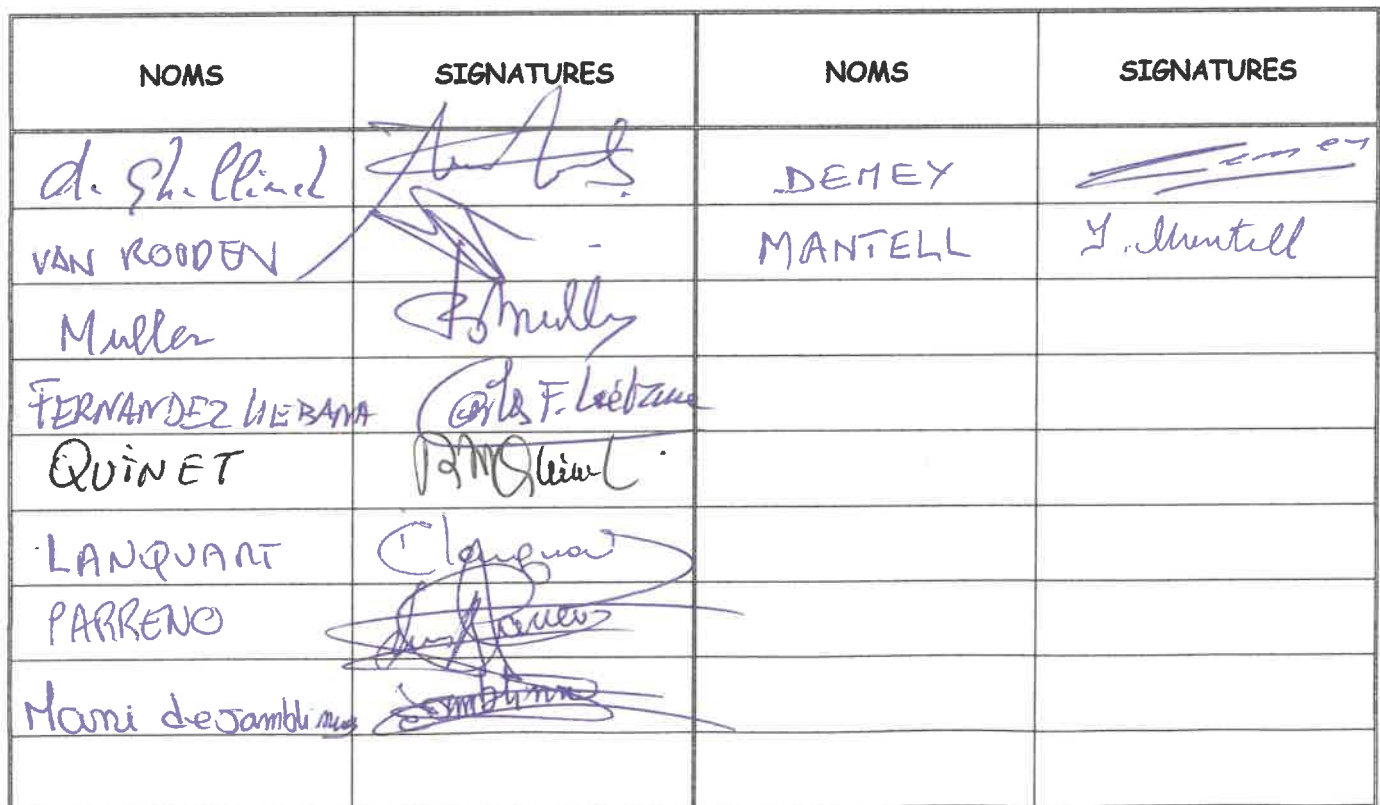 NOMS SIGNATURES NOMS SIGNATURES
d. Ghellinck DEMEY Demey
VAN ROODEN MANTELL Y. Mantell
Muller Muller
FERNANDEZ LIEBANA Carlos F. Liébana
QUINET RMQuinet
LANQUART Clanquart
PARRENO Parreno